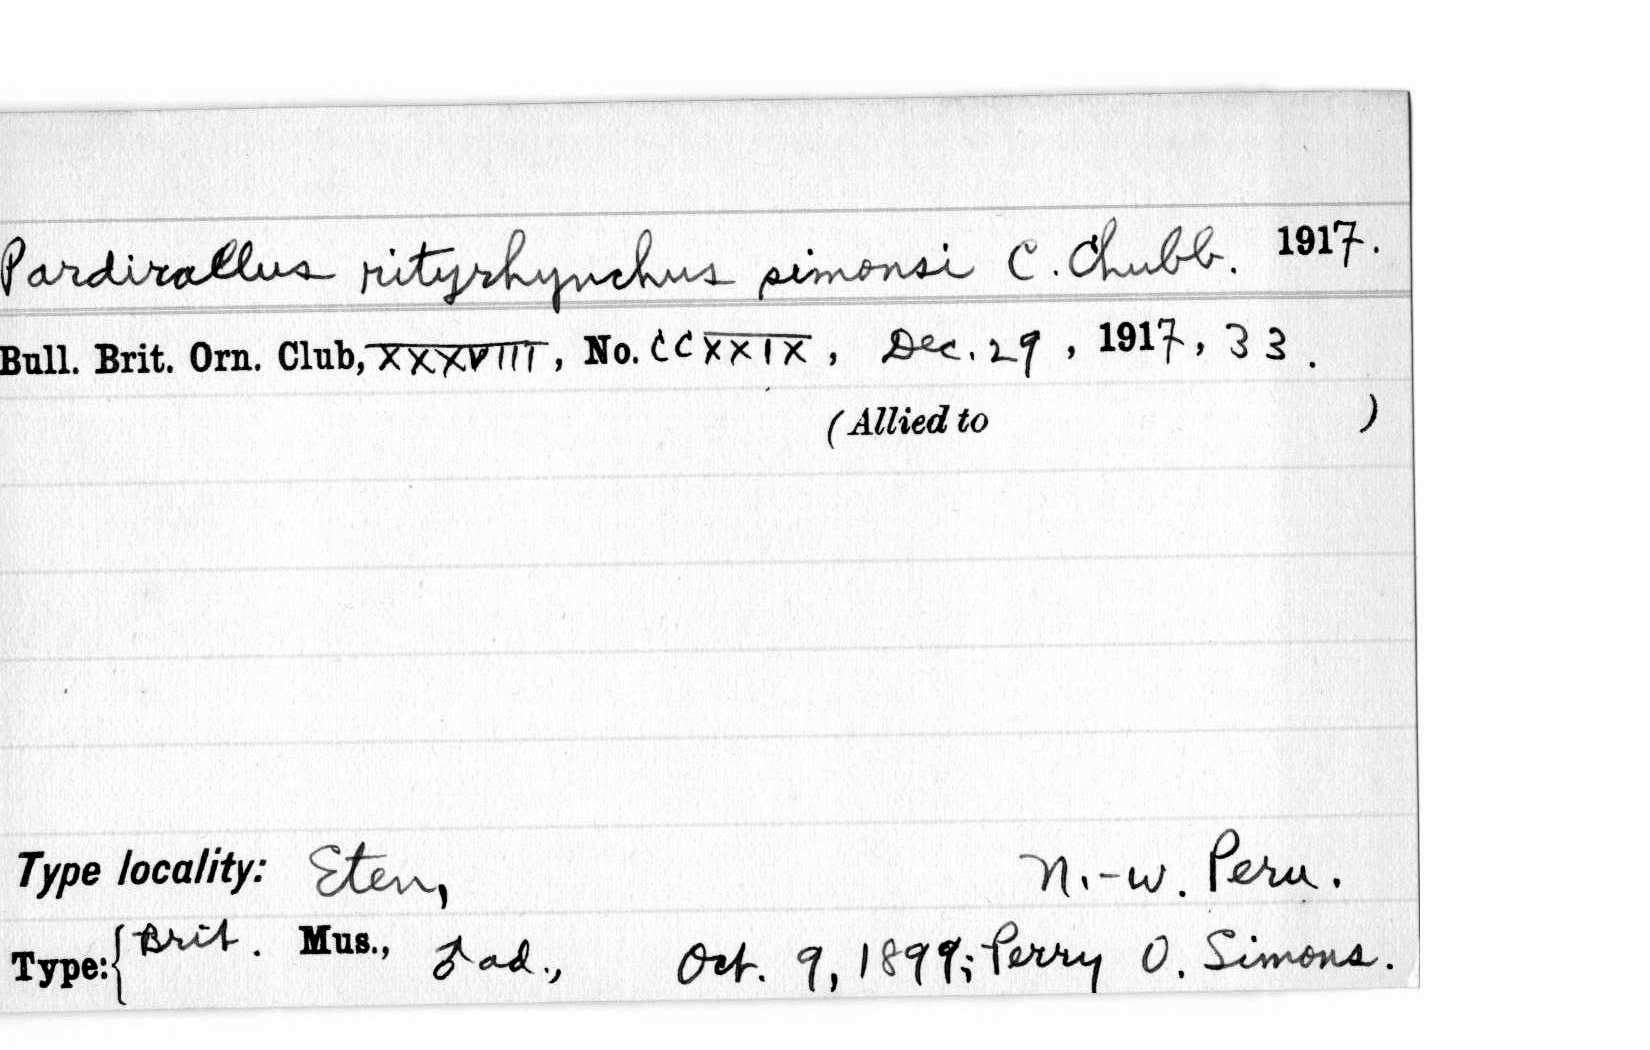 Pardirallus rityrhynchus simonsi C. Chubb. 1917.
Bull. Brit. Orn. Club, XXXVIII, No. CCXXIX, Dec. 29, 1917, 33.
(Allied to )
Type locality: Eten, N.-W. Peru.
Type: { Brit. Mus., ♂ ad., Oct. 9, 1899; Perry O. Simons.